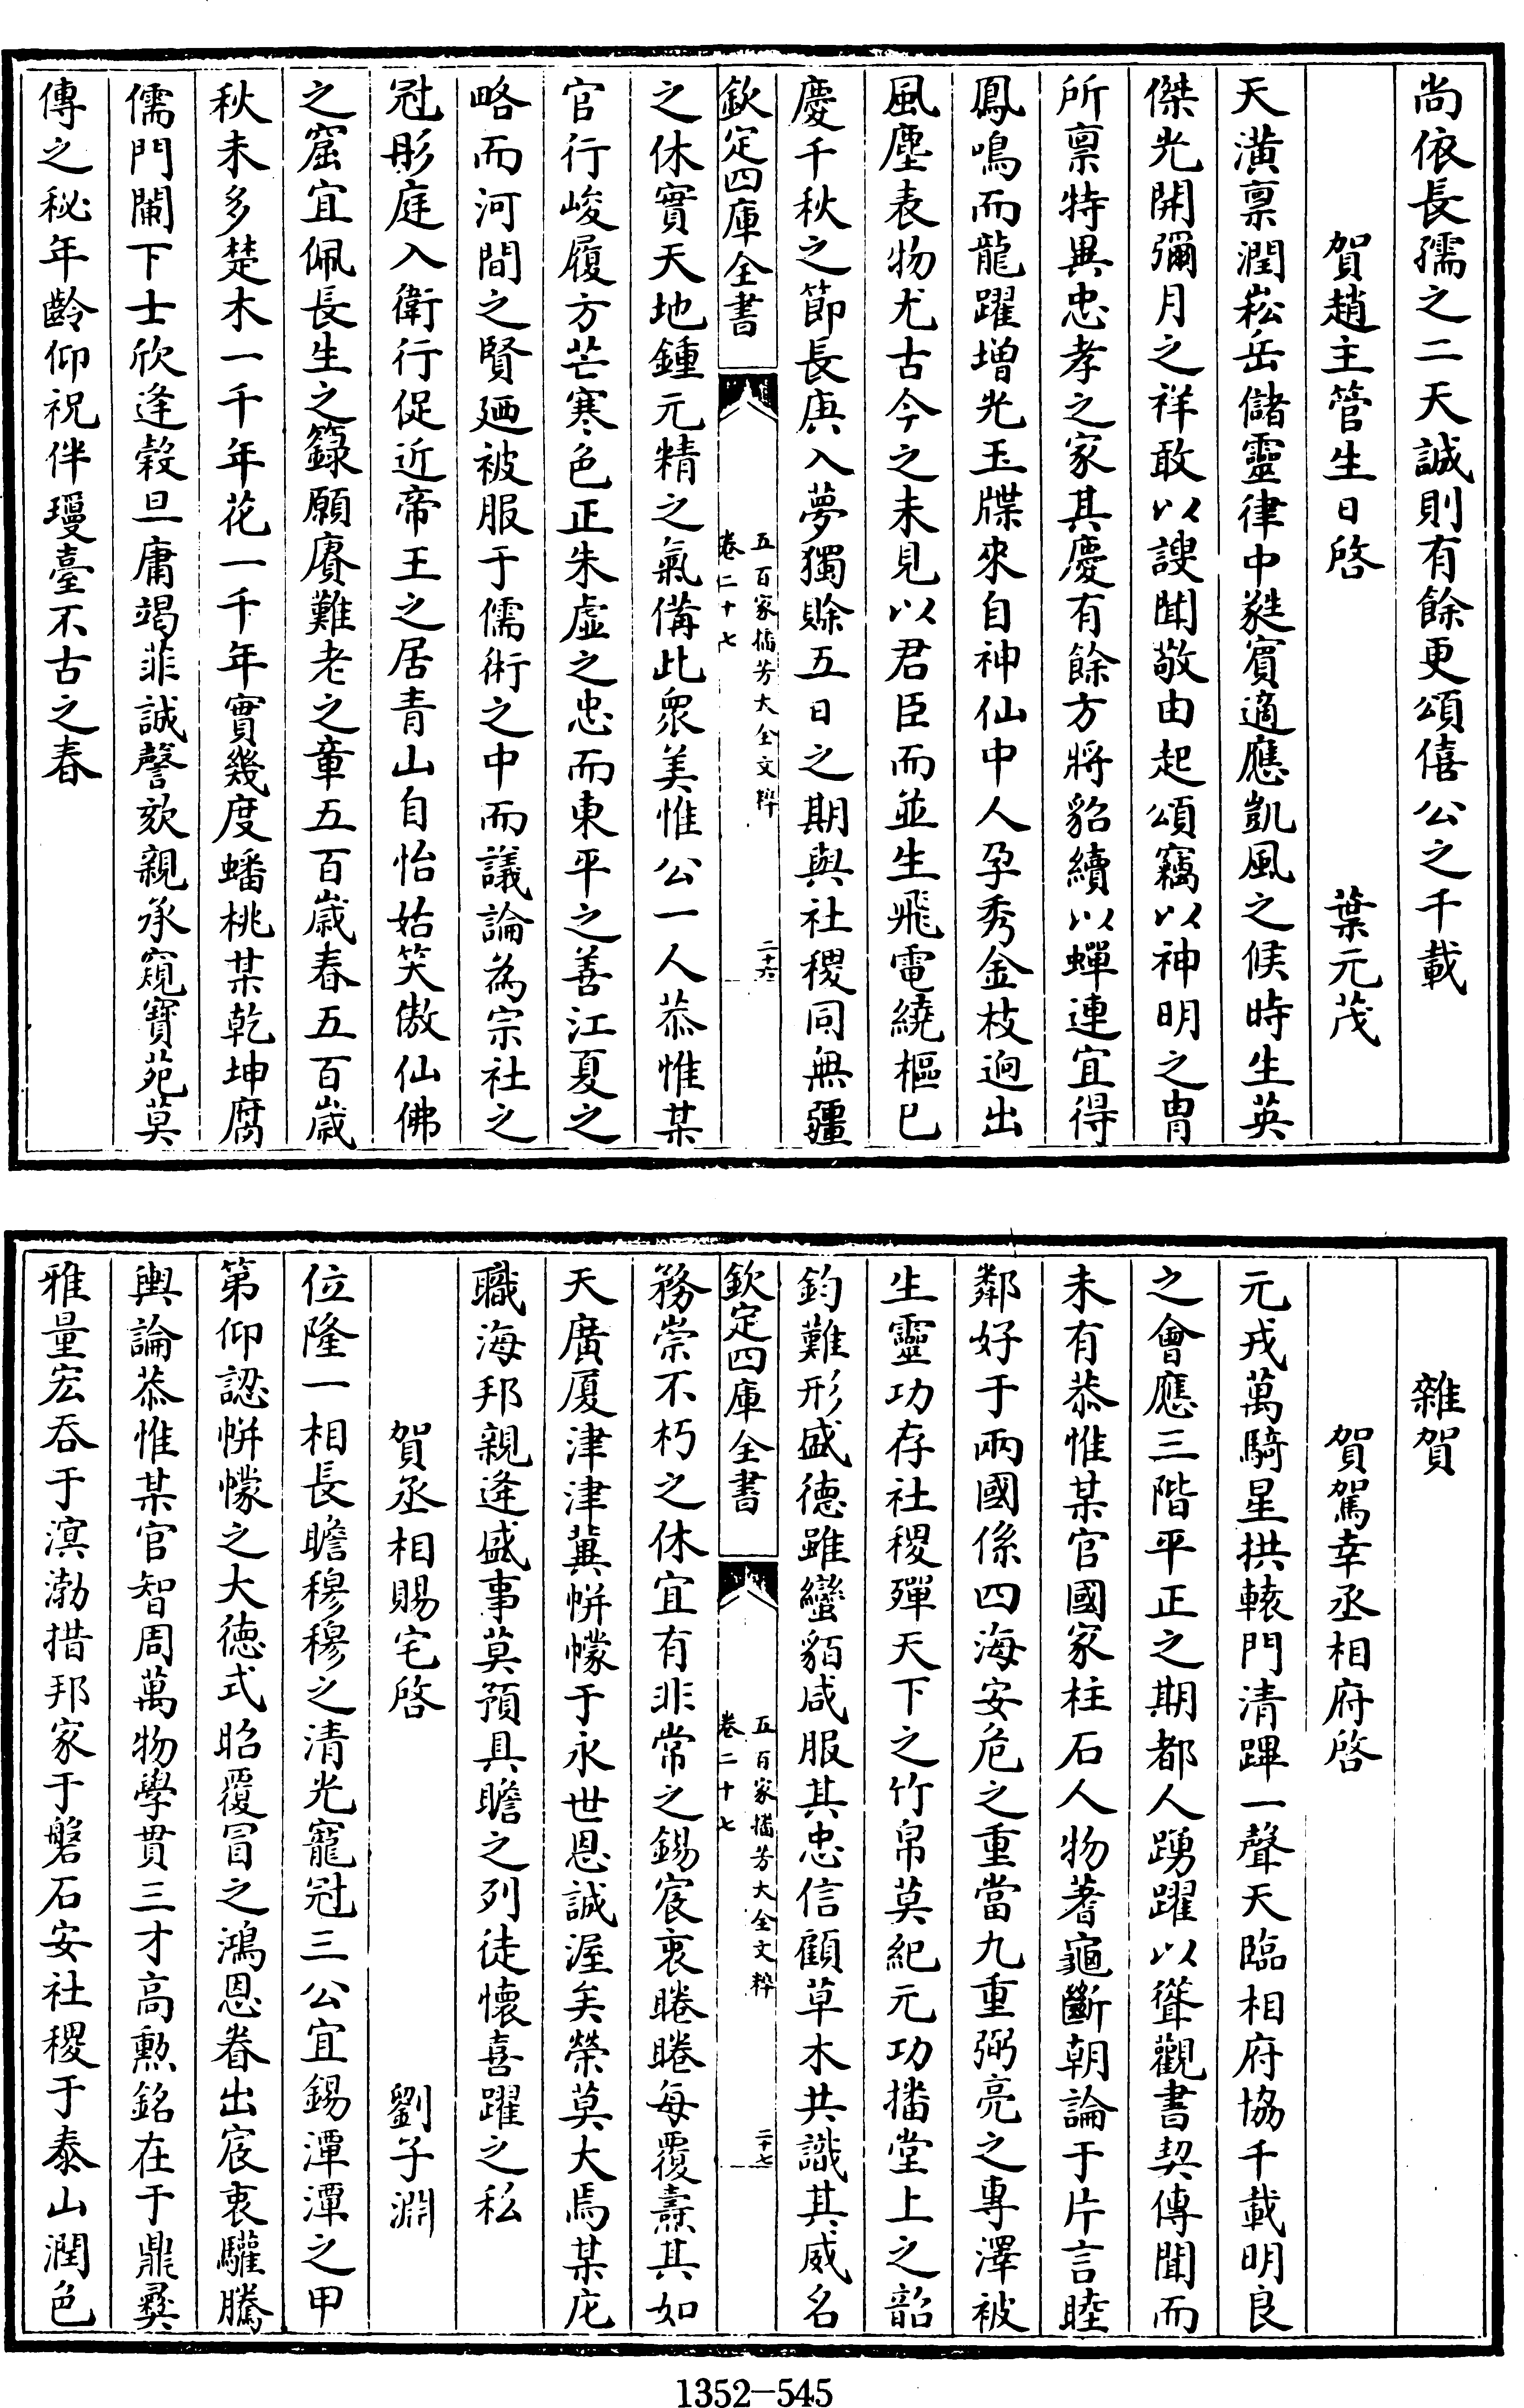 尚依長孺之二天誠則有餘更頌僖公之千載
賀趙主管生日啓 葉元茂
天潢禀潤崧岳儲靈律中蕤賓適應凱風之候時生英
傑光開彌月之祥敢以謏聞敬由起頌竊以神明之胄
所禀特異忠孝之家其慶有餘方將貂續以蟬連宜得
鳳鳴而龍躍增光玉牒來自神仙中人孕秀金枝迥出
風塵表物尤古今之未見以君臣而並生飛電繞樞已
慶千秋之節長庚入夢獨賒五日之期與社稷同無疆
欽定四庫全書 五百家播芳大全文粹 卷二十七 二十六
之休實天地鍾元精之氣備此衆美惟公一人恭惟某
官行峻履方芒寒色正朱虛之忠而東平之善江夏之
略而河間之賢廼被服于儒術之中而議論為宗社之
冠彤庭入衛行促近帝王之居青山自怡姑笑傲仙佛
之窟宜佩長生之籙願賡難老之章五百歲春五百歲
秋未多楚木一千年花一千年實幾度蟠桃某乾坤腐
儒門闌下士欣逢穀旦庸竭菲誠謦欬親承窺寶苑莫
傳之秘年齡仰祝伴瓊臺不古之春
雜賀
賀駕幸丞相府啓
元戎萬騎星拱轅門清蹕一聲天臨相府協千載明良
之會應三階平正之期都人踴躍以聳觀書契傳聞而
未有恭惟某官國家柱石人物蓍龜斷朝論于片言睦
鄰好于兩國係四海安危之重當九重弼亮之專澤被
生靈功存社稷殫天下之竹帛莫紀元功播堂上之韶
鈞難形盛德雖蠻貊咸服其忠信顧草木共識其威名
欽定四庫全書 五百家播芳大全文粹 卷二十七 二十七
務崇不朽之休宜有非常之錫宸衷睠睠每覆燾其如
天廣厦津津冀帲幪于永世恩誠渥矣榮莫大焉某庀
職海邦親逢盛事莫預具瞻之列徒懷喜躍之私
賀丞相賜宅啓 劉子淵
位隆一相長瞻穆穆之清光寵冠三公宜錫潭潭之甲
第仰認帲幪之大德式昭覆冒之鴻恩眷出宸衷驩騰
輿論恭惟某官智周萬物學貫三才高勲銘在于鼎彞
雅量宏吞于溟渤措邦家于磐石安社稷于泰山潤色
1352—545